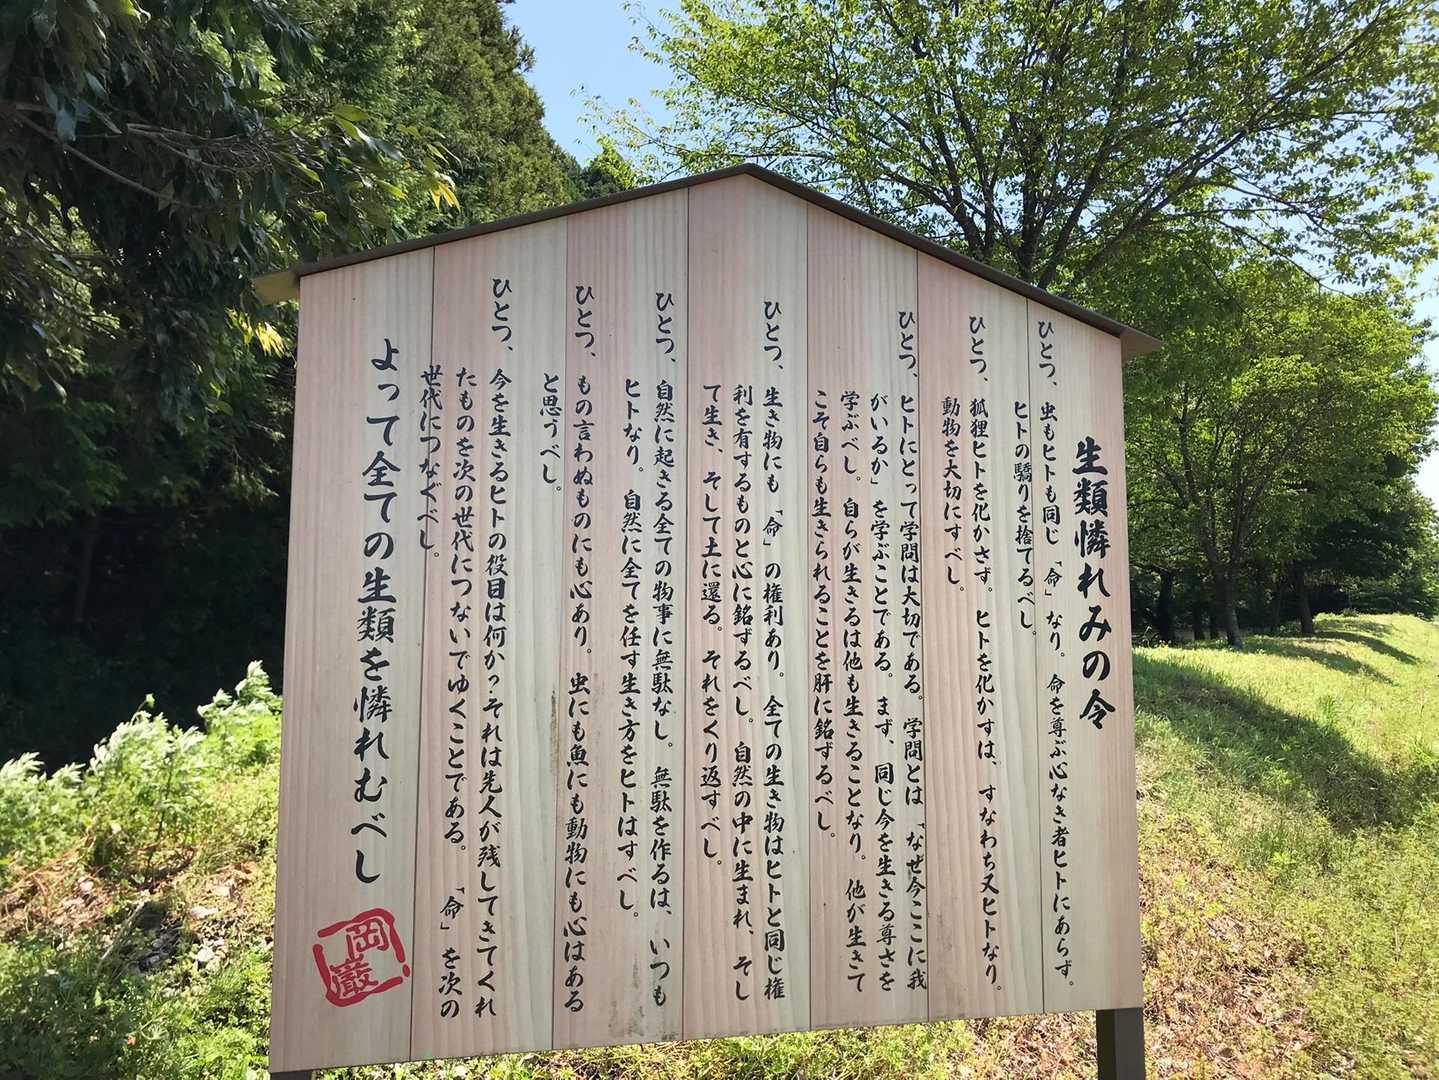 生類憐れみの令
ひとつ、虫もヒトも同じ「命」なり。命を尊ぶ心なき者ヒトにあらず。
ヒトの驕りを捨てるべし。
ひとつ、狐狸ヒトを化かさず。ヒトを化かすは、すなわち又ヒトなり。
動物を大切にすべし。
ひとつ、ヒトにとって学問は大切である。学問とは「なぜ今ここに我
がいるか」を学ぶことである。まず、同じ今を生きる尊さを
学ぶべし。自らが生きるは他も生きることなり。他が生きて
こそ自らも生きられることを肝に銘ずるべし。
ひとつ、生き物にも「命」の権利あり。全ての生き物はヒトと同じ権
利を有するものと心に銘ずるべし。自然の中に生まれ、そし
て生き、そして土に還る。それをくり返すべし。
ひとつ、自然に起きる全ての物事に無駄なし。無駄を作るは、いつも
ヒトなり。自然に全てを任す生き方をヒトはすべし。
ひとつ、もの言わぬものにも心あり。虫にも魚にも動物にも心はある
と思うべし。
ひとつ、今を生きるヒトの役目は何か?それは先人が残してきてくれ
たものを次の世代につないでゆくことである。「命」を次の
世代につなぐべし。
よって全ての生類を憐れむべし
岡
巌